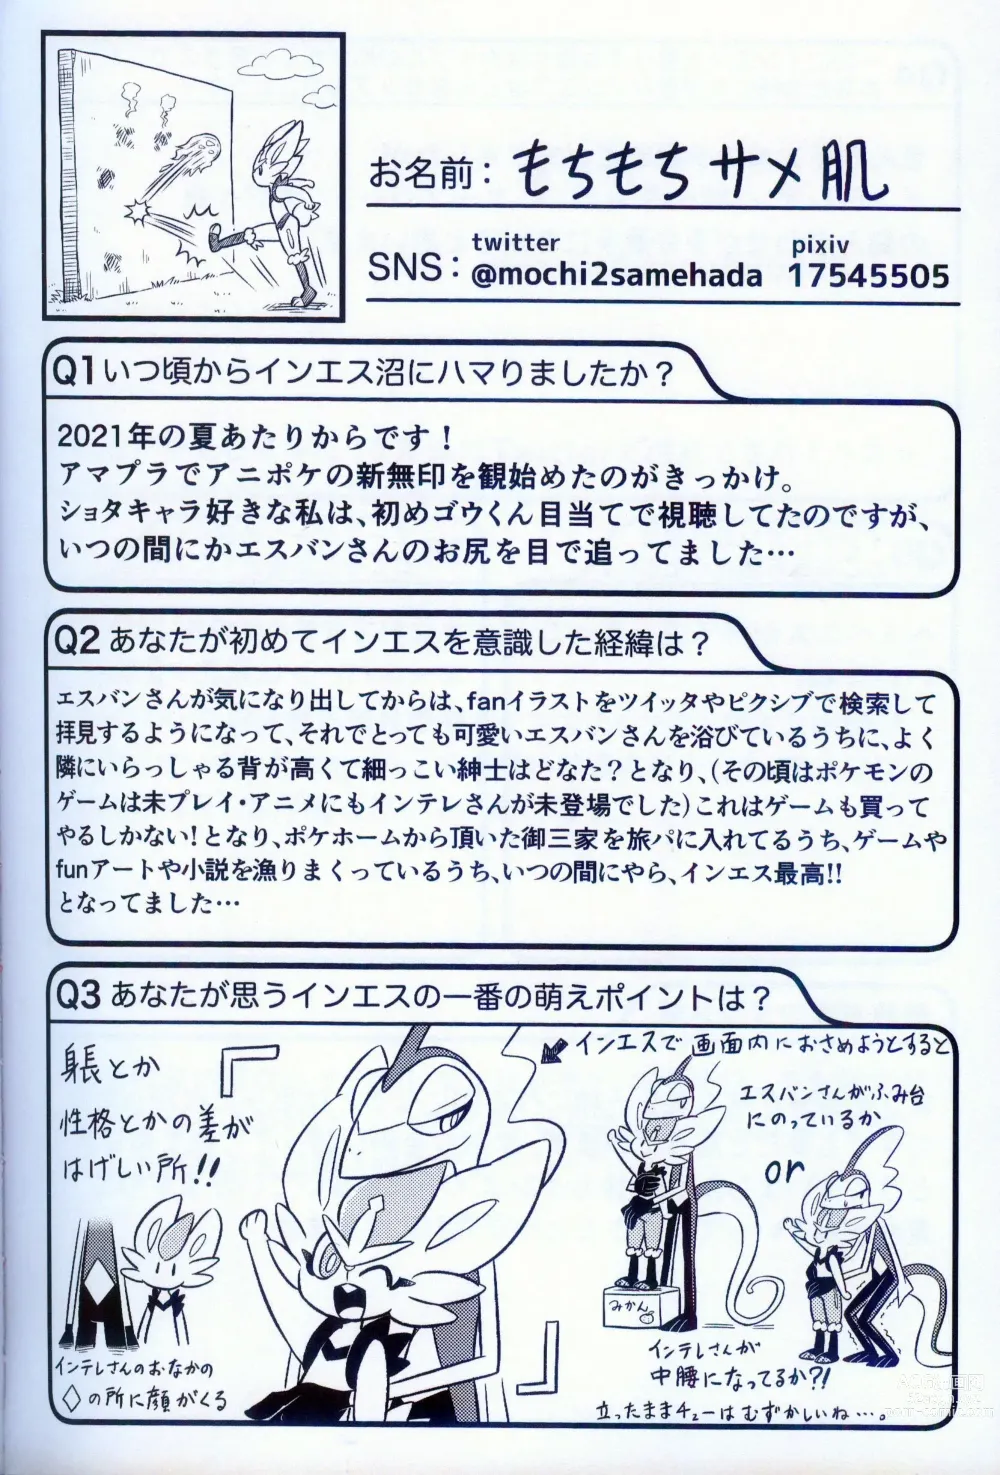 お名前：もちもちサメ肌
twitter
pixiv
SNS：@mochi2samehada 17545505
Q1 いつ頃からインエス沼にハマりましたか？
2021年の夏あたりからです！
アマプラでアニポケの新無印を観始めたのがきっかけ。
ショタキャラ好きな私は、初めゴウくん目当てで視聴してたのですが、
いつの間にかエスバンさんのお尻を目で追ってました…
Q2 あなたが初めてインエスを意識した経緯は？
エスバンさんが気になり出してからは、fanイラストをツイッタやピクシブで検索して
拝見するようになって、それでとっても可愛いエスバンさんを浴びているうちに、よく
隣にいらっしゃる背が高くて細っこい紳士はどなた？となり、(その頃はポケモンの
ゲームは未プレイ・アニメにもインテレさんが未登場でした)これはゲームも買って
やるしかない！となり、ポケホームから頂いた御三家を旅パに入れてるうち、ゲームや
funアートや小説を漁りまくっているうち、いつの間にやら、インエス最高!!
となってました…
Q3 あなたが思うインエスの一番の萌えポイントは？
とか
性格とかの差が
はげしい所!!
インテレさんのおなかの
◇の所に顔がくる
インエスで画面内におさめようとすると
エスバンさんがふみ台
にのっているか
or
みかん
インテレさんが
中腰になってるか?!
立ったままチューはむずかしいね…。